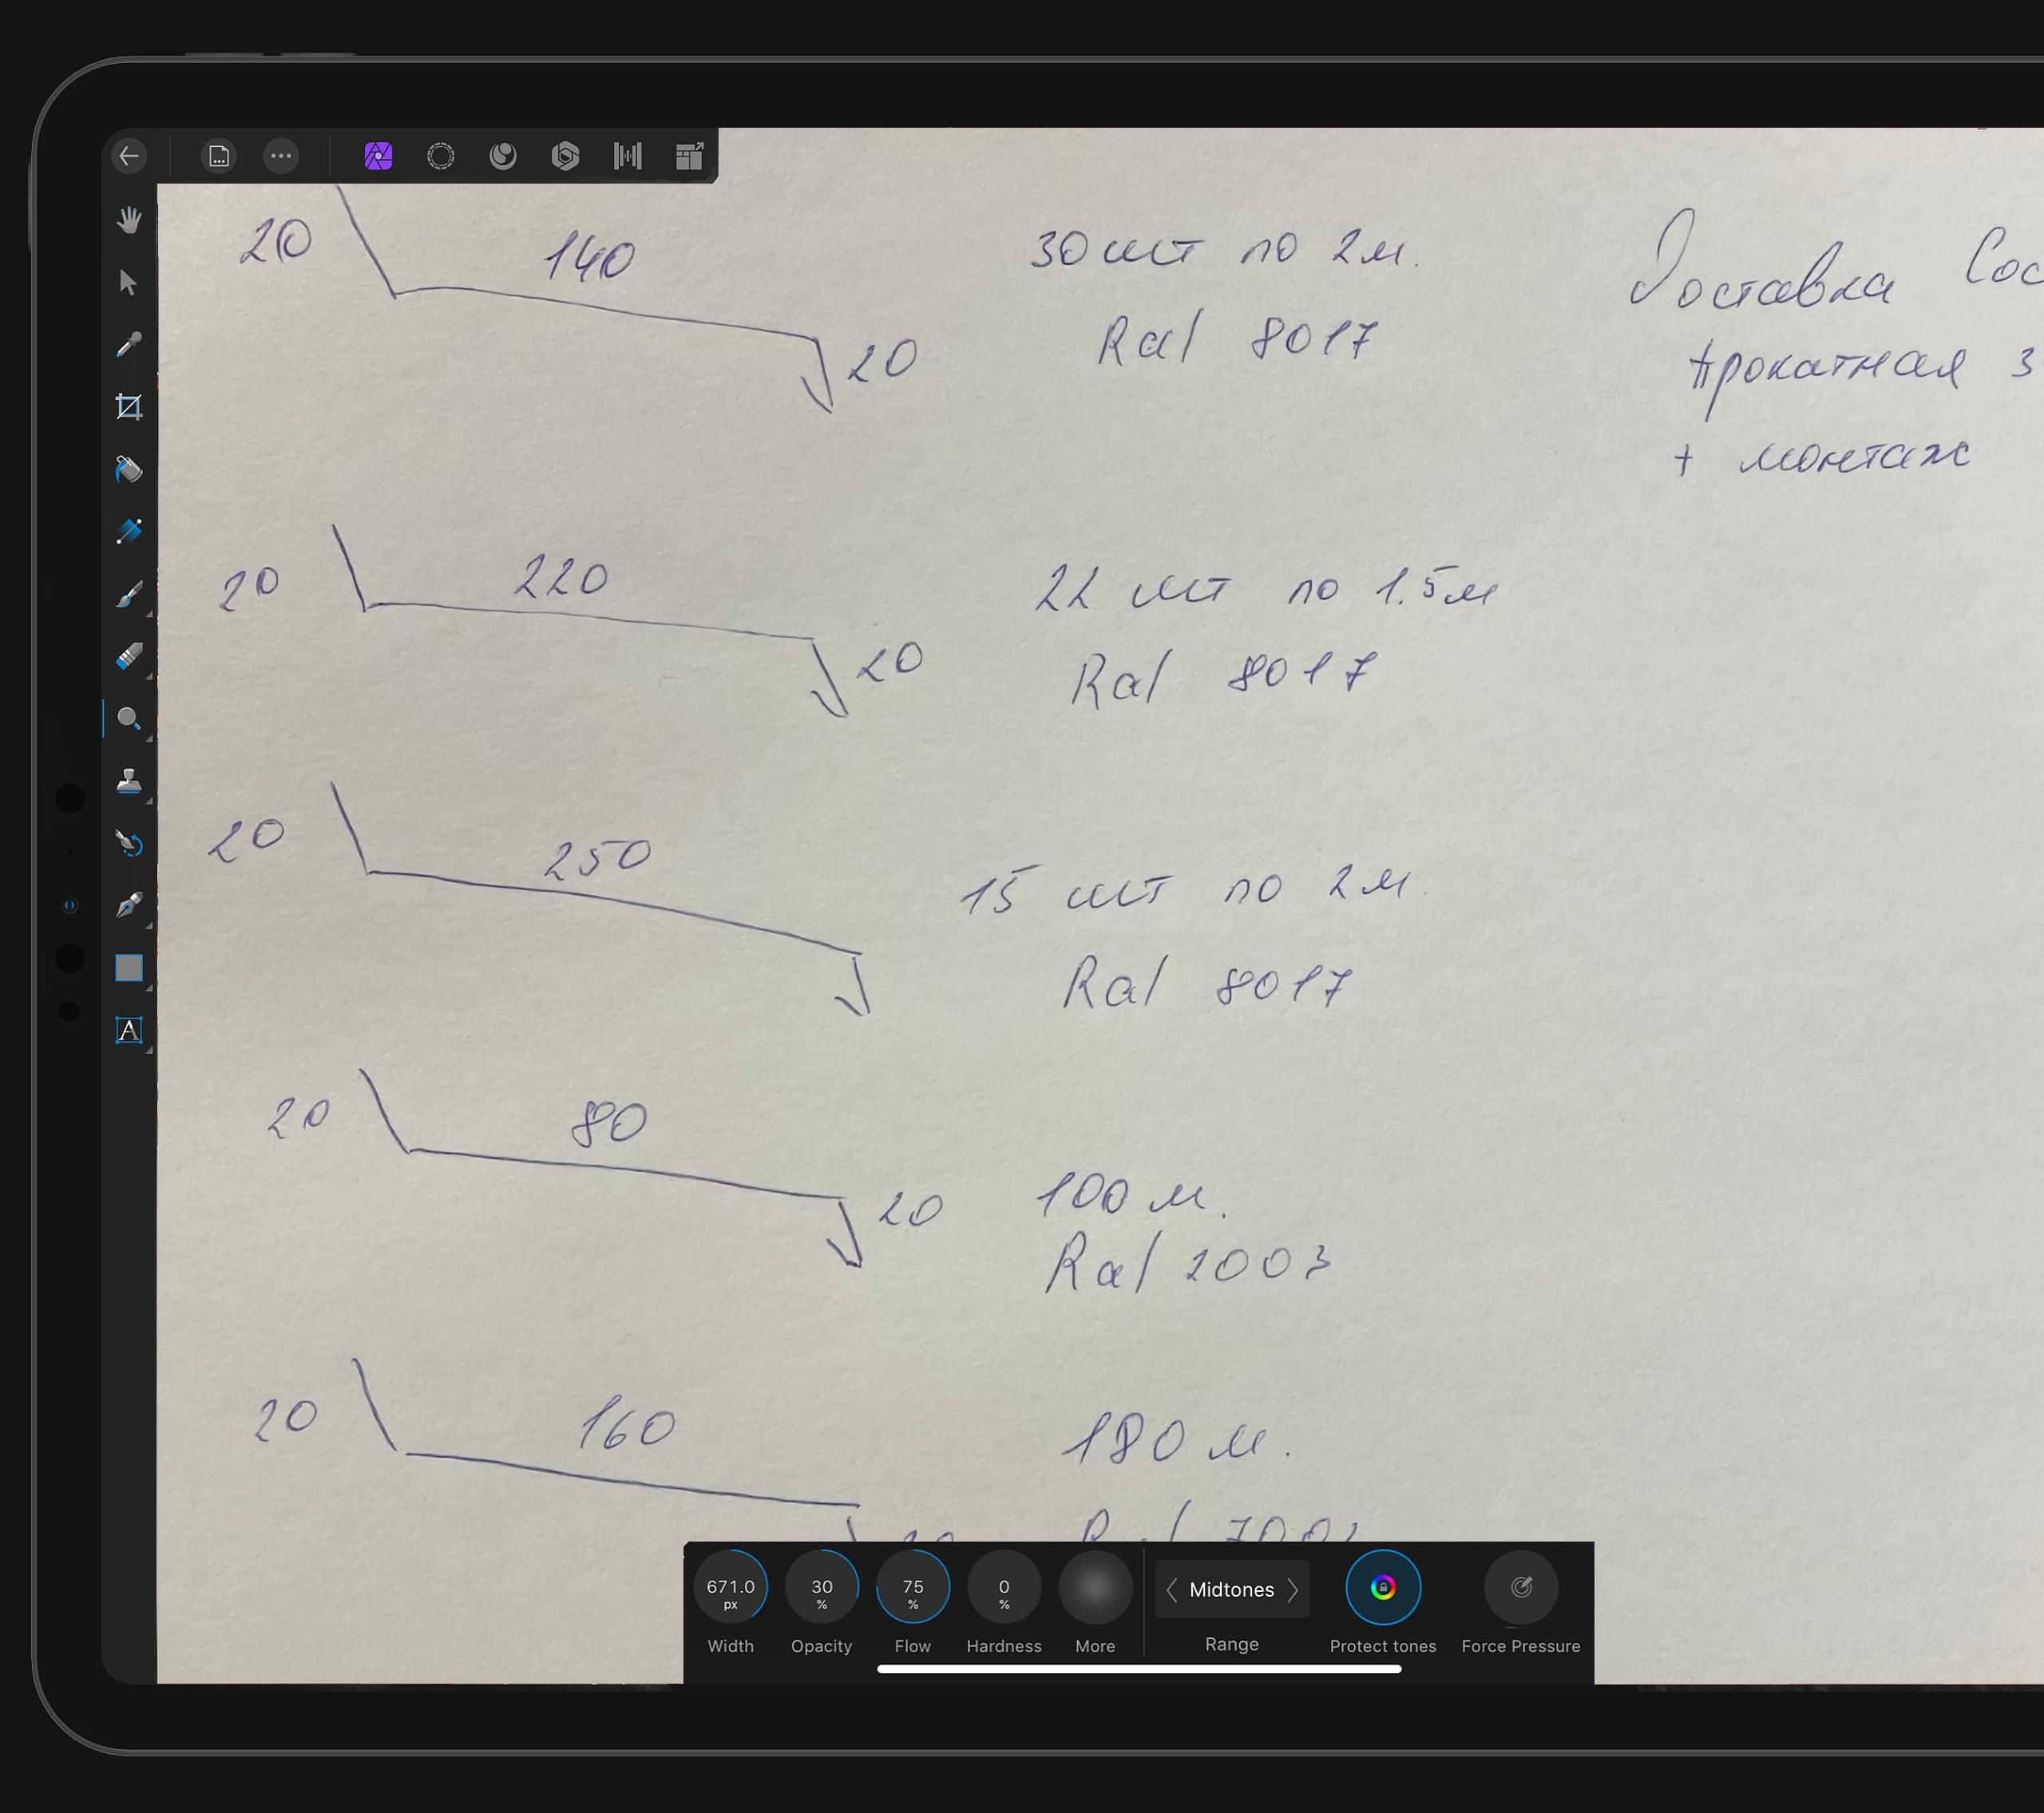 20
140
20
30 шт по 2м.
Ral 8017
Доставка
Прокатная
+ монтаж
20
220
20
22 шт по 1.5м
Ral 8017
20
250
15 шт по 2м.
Ral 8017
20
80
20
100 м.
Ral 2003
20
160
180 м.
Ral
671.0
px
Width
30
%
Opacity
75
%
Flow
0
%
Hardness
More
Midtones
Range
Protect tones
Force Pressure
A